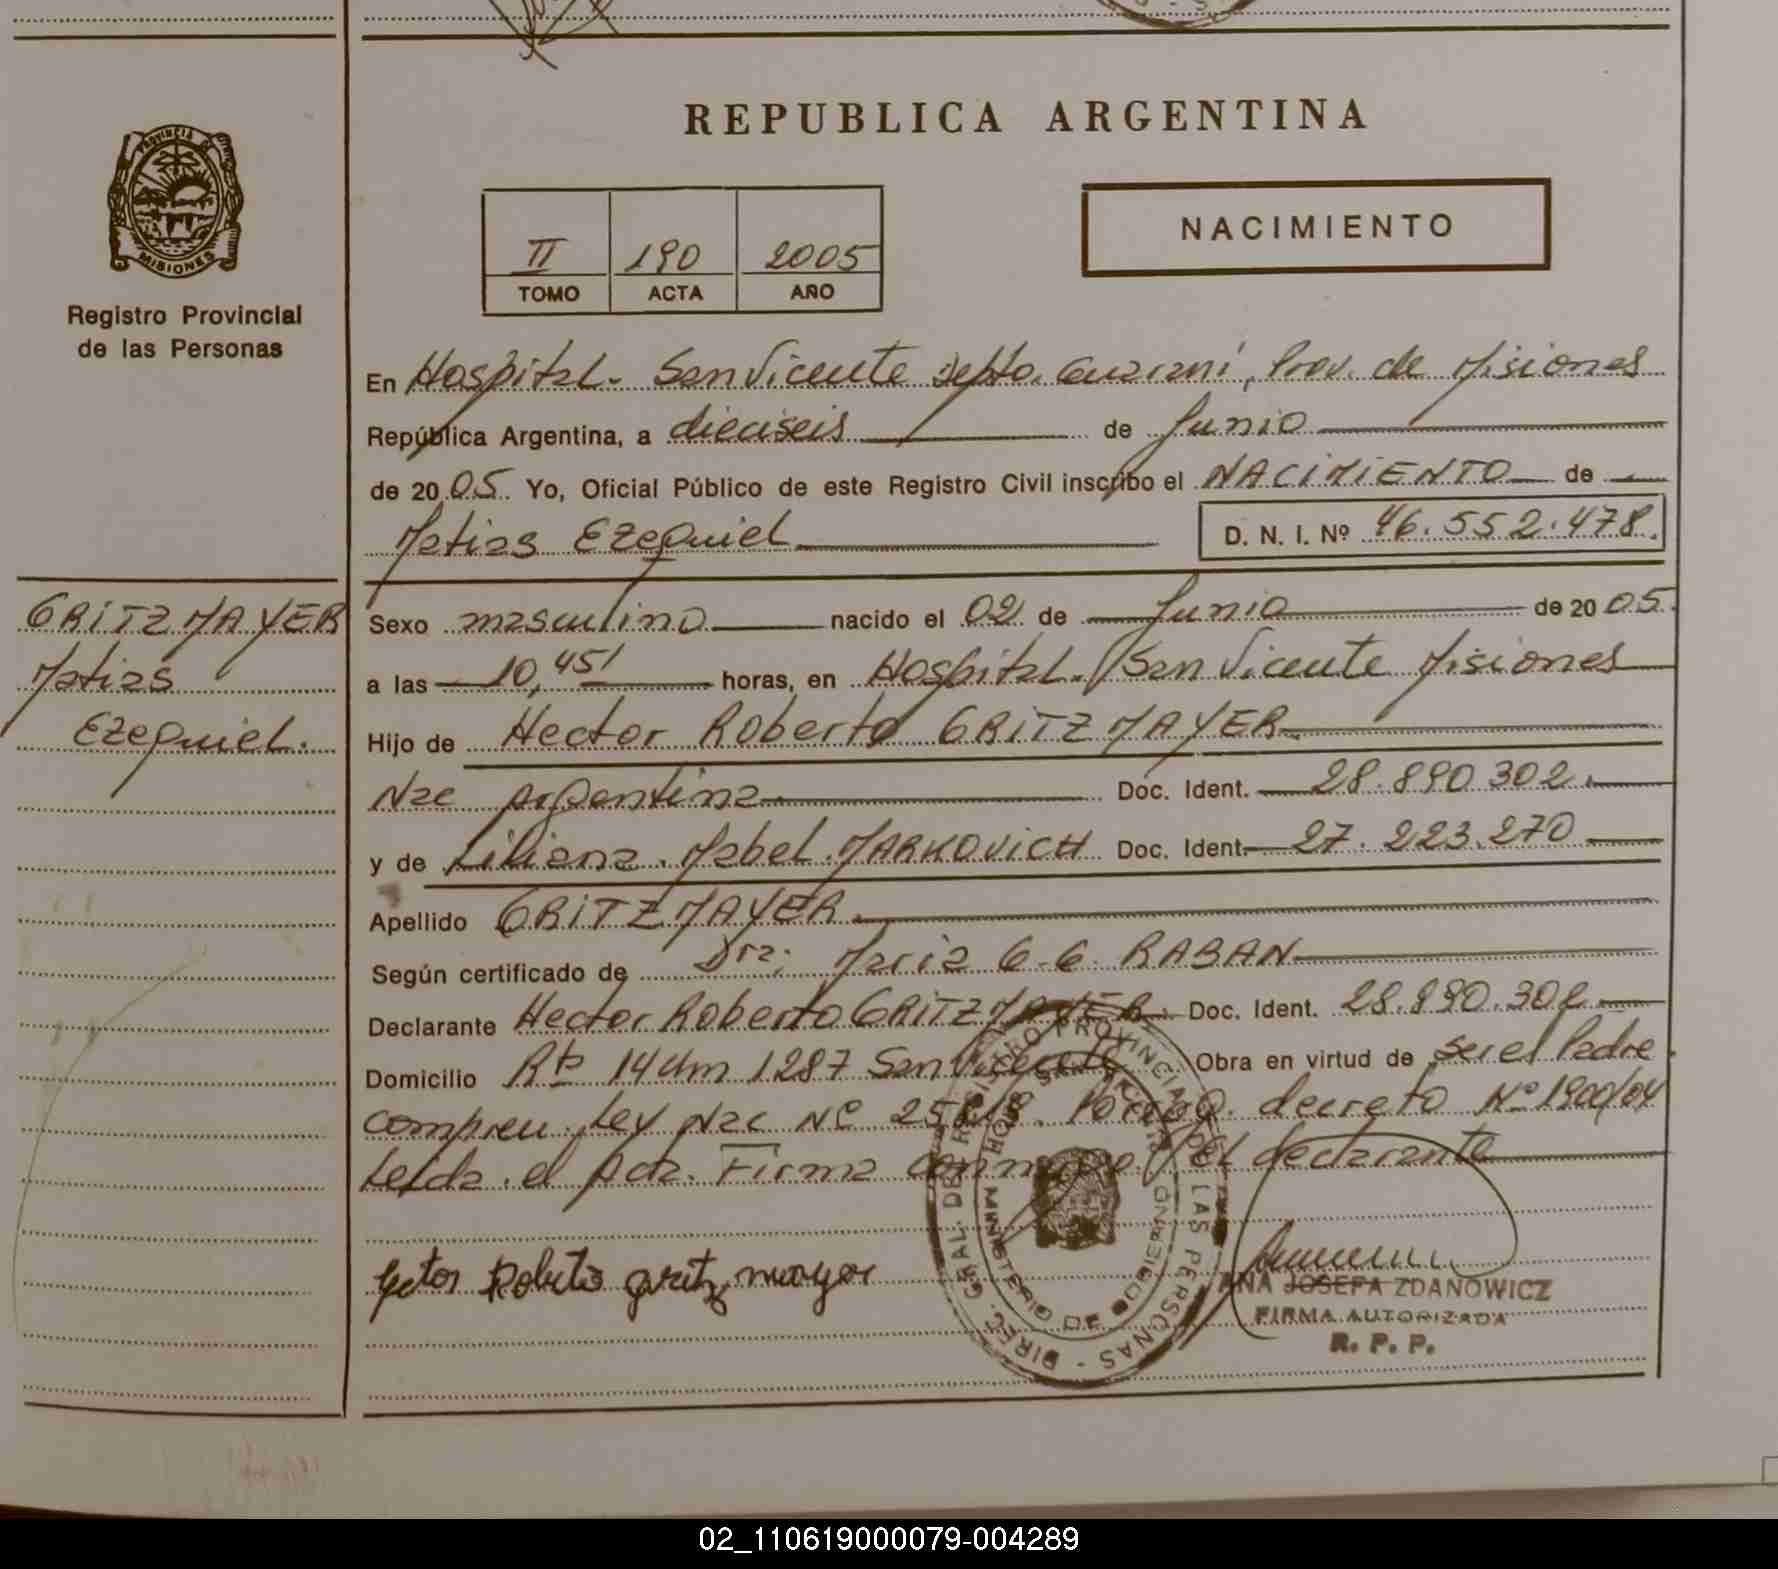 REPUBLICA ARGENTINA
PROVINCIA DE
MISIONES
Registro Provincial
de las Personas
NACIMIENTO
II 190 2005
TOMO ACTA AÑO
En Hospital. San Vicente Depto. Guarani, Prov. de Misiones
República Argentina, a dieciseis de Junio
de 2005. Yo, Oficial Público de este Registro Civil inscribo el NACIMIENTO de
Matias Ezequiel D. N. I. Nº 46.552.478.
GRITZMAYER
Matias
Ezequiel.
Sexo masculino nacido el 02 de Junio de 2005.
a las 10,45' horas, en Hospital. San Vicente Misiones
Hijo de Hector Roberto GRITZMAYER
Nac argentina Doc. Ident. 28.890.302.
y de Liliana. Mabel. MARKOVICH Doc. Ident. 27.223.270
Apellido GRITZMAYER
Según certificado de Dra: Maria G.G. RABAN
Declarante Hector Roberto GRITZMAYER. Doc. Ident. 28.890.302
Domicilio Rta 14 Km 1287 San Vicente Obra en virtud de ser el Padre.
Ley Nac Nº decreto Nº 1900/04
Leida el Acta. Firma conmigo. el declarante
Roberto gritz mayer
DIREC. GRAL. DEL REGISTRO PROVINCIAL DE LAS PERSONAS
MINISTERIO DE GOBIERNO
ANA JOSEFA ZDANOWICZ
FIRMA AUTORIZADA
R. P. P.
02_110619000079-004289